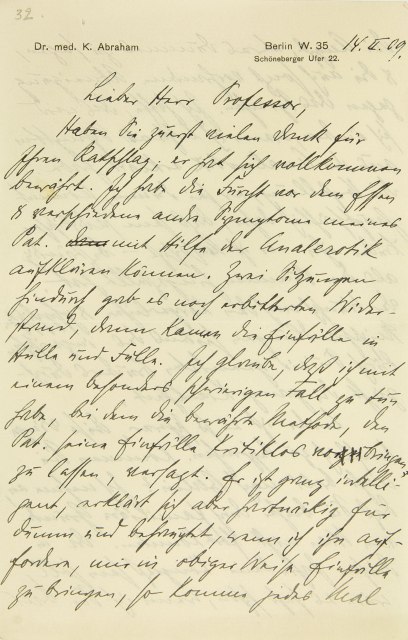 32.
Dr. med. K. Abraham
Berlin W. 35 14. II. 09.
Schöneberger Ufer 22.
Lieber Herr Professor,
Haben Sie zuerst vielen Dank für
Ihren Ratschlag; er hat sich vollkommen
bewährt. Ich habe die Furcht vor dem Essen
& verschiedene andre Symptome meines
Pat. mit Hilfe der Analerotik
aufklären können. Zwei Sitzungen
hindurch gab es noch erbitterten Wider-
stand, dann kamen die Einfälle in
Hülle und Fülle. Ich glaube, daß ich mit
einem besonders schwierigen Fall zu tun
habe, bei dem die bewährte Methode, den
Pat. seine Einfälle kritiklos vorbringen
zu lassen, versagt. Er ist ganz intelli-
gent, erklärt sich aber hartnäckig für
dumm und behauptet, wenn ich ihn auf-
fordere, mir in obiger Weise Einfälle
zu bringen, so komme jedes Mal